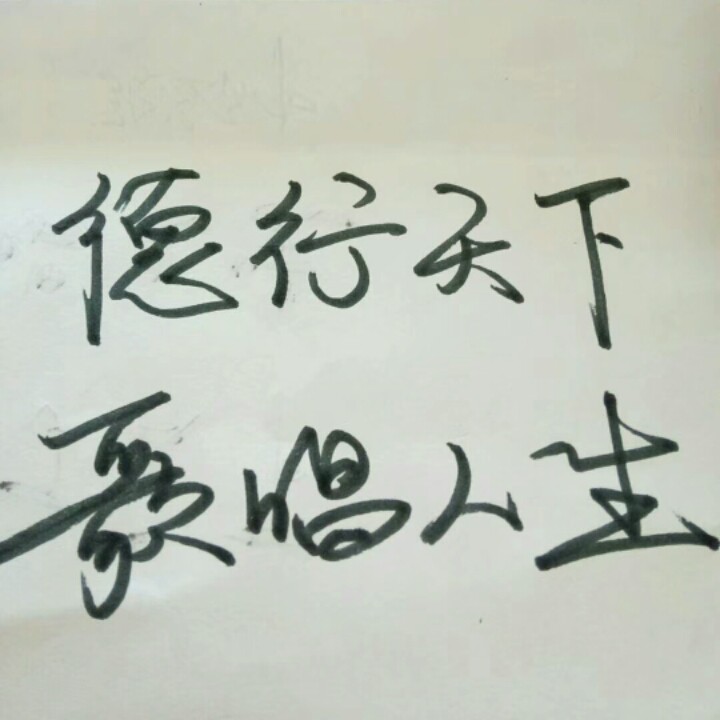 德行天下
歌唱人生